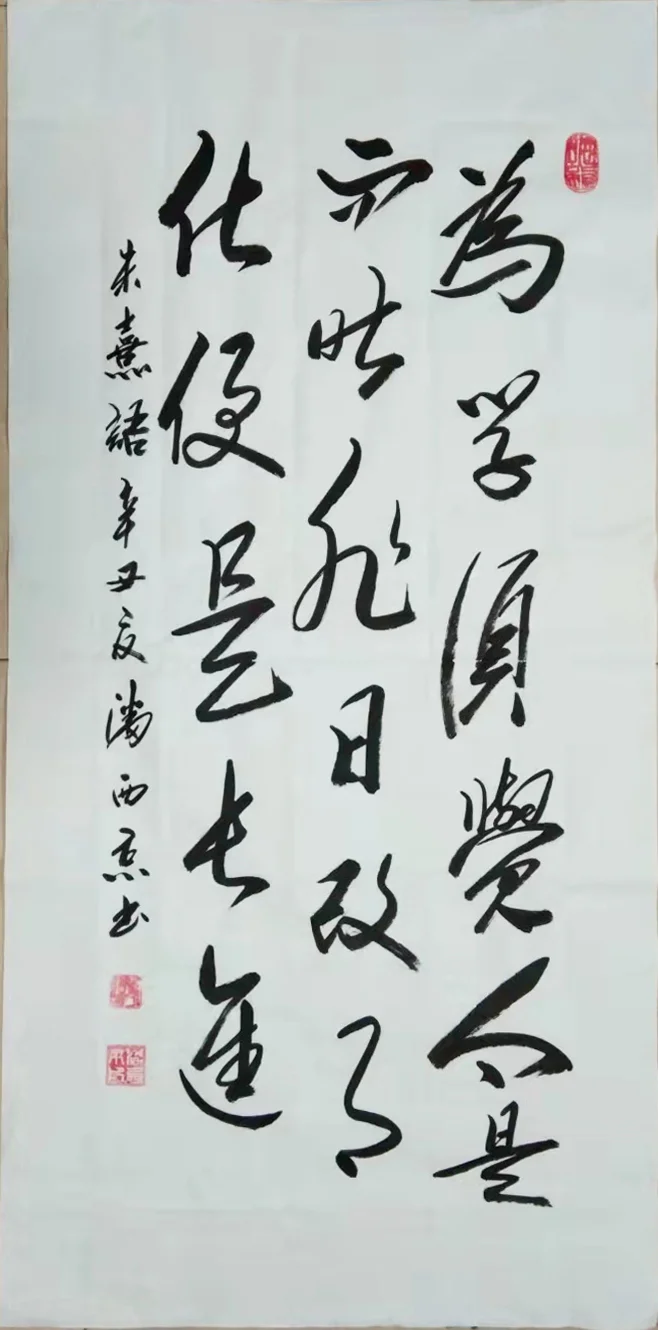 為学須覺今是
而昨非日改月
化便是長進
朱熹語辛丑夏潘西京书